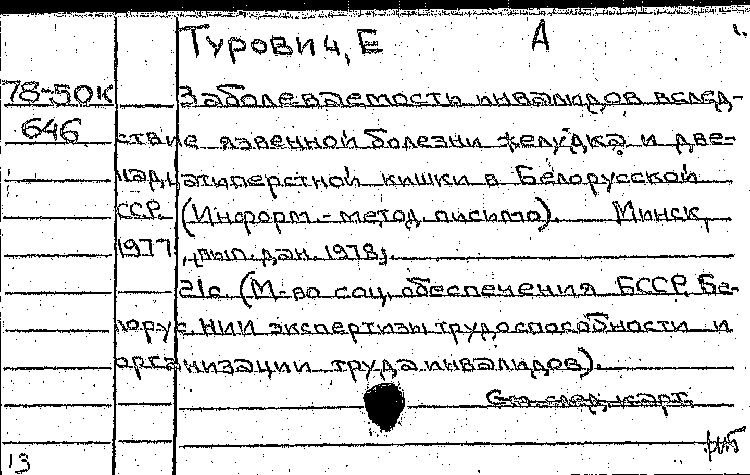 Турович, Е А
78-50К Заболеваемость инвалидов вслед-
646 ствие язвенной болезни желудка и две-
надцатиперстной кишки в Белорусской
ССР. (Информ.-метод. письмо). Минск,
1977, [вып. дан. 1978].
21с. (М-во соц. обеспечения БССР. Бе-
лорус НИИ экспертизы трудоспособности и
организации труда инвалидов).
См след. карт.
13